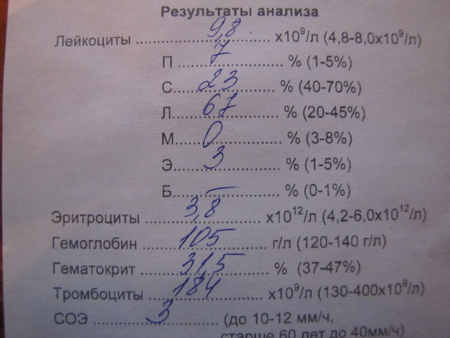 Результаты анализа
Лейкоциты 9,8 x10⁹/л (4,8-8,0x10⁹/л)
П 7 % (1-5%)
С 23 % (40-70%)
Л 67 % (20-45%)
М 0 % (3-8%)
Э 3 % (1-5%)
Б – % (0-1%)
Эритроциты 3,8 x10¹²/л (4,2-6,0x10¹²/л)
Гемоглобин 105 г/л (120-140 г/л)
Гематокрит 31,5 % (37-47%)
Тромбоциты 184 x10⁹/л (130-400x10⁹/л)
СОЭ 3 (до 10-12 мм/ч,
старше 60 лет до 40мм/ч)